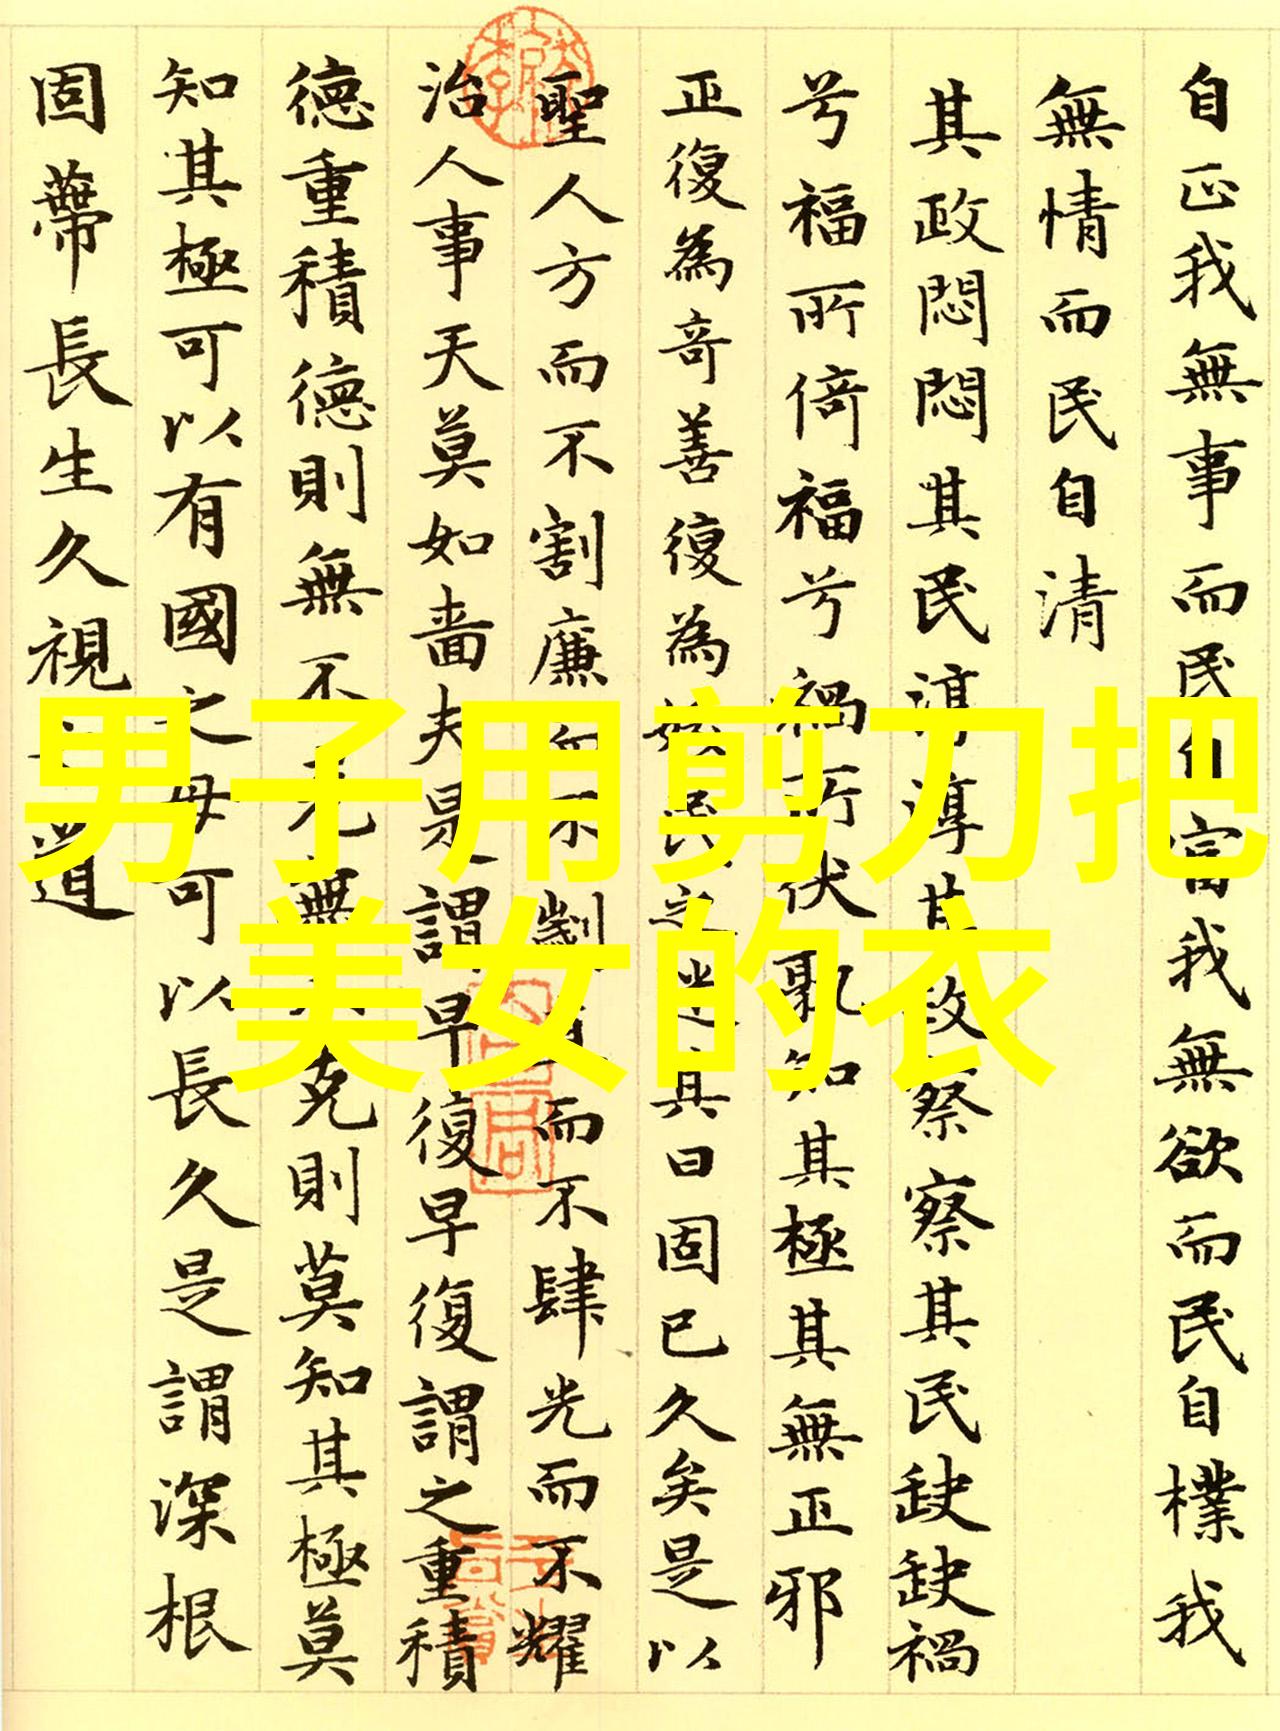 男子用剪刀把
美女的衣
自正我無事而民自富我無欲而民自樸我
無情而民自清
其政悶悶其民淳淳其政察察其民缺缺禍
兮福所倚福兮禍所伏孰知其極其無正邪
正復為奇善復為妖民之迷其日固已久矣是以
聖人方而不割廉而不劌直而不肆光而不耀
治人事天莫如嗇夫是謂早復早復謂之重積
德重積德則無不克無不克則莫知其極莫
知其極可以有國之母可以長久是謂深根
固蔕長生久視之道